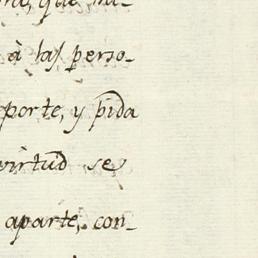 que
à las perso-
porte, y pida
virtud se
aparte, con-